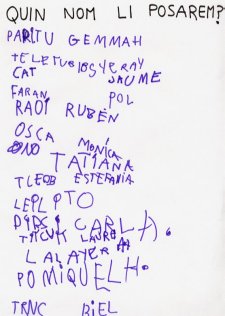 QUIN NOM LI POSAREM?
PARITU GEMMAH
TELETUBIES YERAY
CAT JAUME
FARAN POL
RAOI RUBÉN
OSCA
MONICA
TATIANA
ESTEFANIA
LEPL PTO
CARLA.
LAURA
LALAYER
PO MIQUELH.
TRNC BIEL